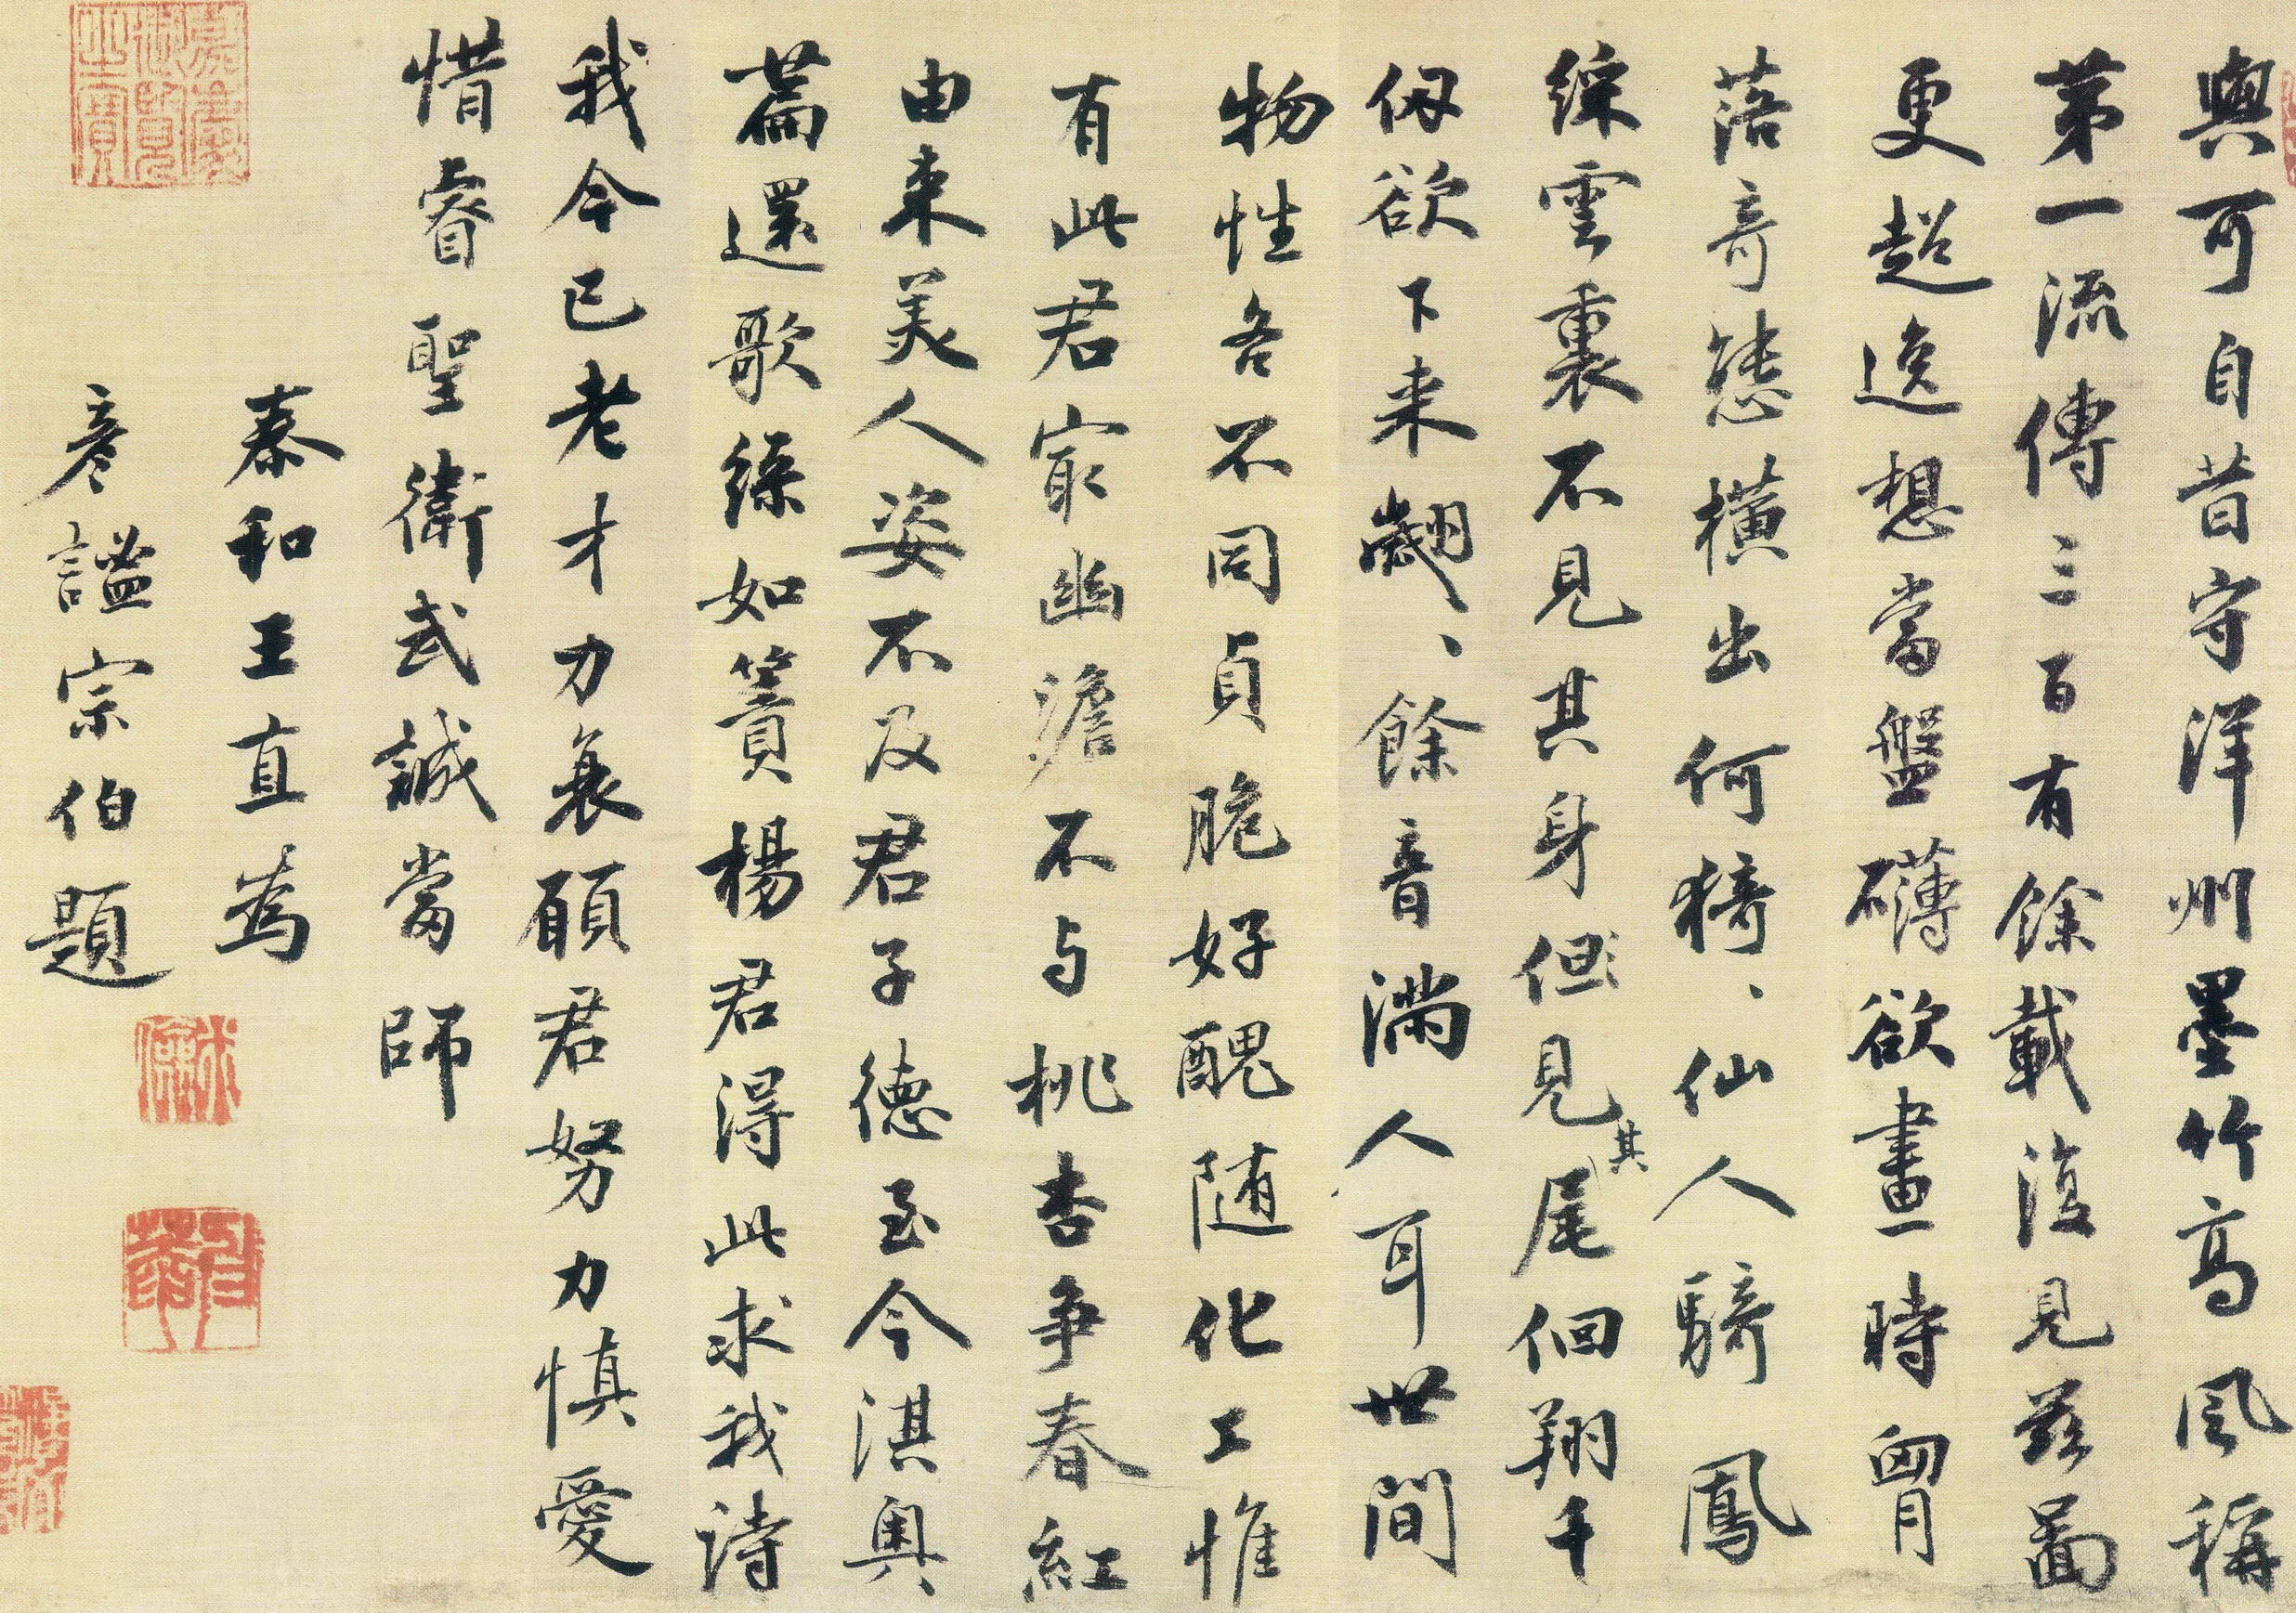 與可自昔守洋州墨竹高風稱
第一流傳三百有餘載復見茲圖
更超逸想當盤礴欲畫時胷
落奇態橫出何猗、仙人騎鳳
綵雲裏不見其身但見其尾佪翔千
仞欲下来翽、餘音滿人耳世間
物性各不同貞脆好醜随化工惟
有此君寂幽澹不与桃杏争春紅
由来美人姿不及君子德至今淇奥
萹還歌綠如簀楊君得此求我詩
我今已老才力衰願君努力慎愛
惜睿聖衛武誠當師
泰和王直為
彥謐宗伯題